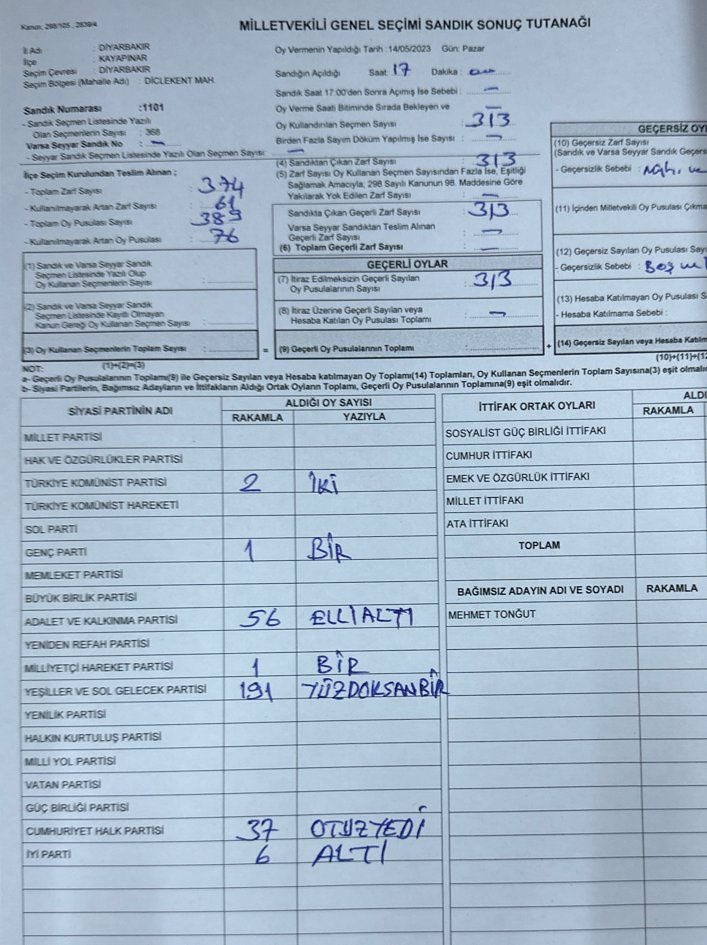 Kanun: 298/105 , 2839/4
MİLLETVEKİLİ GENEL SEÇİMİ SANDIK SONUÇ TUTANAĞI
İl Adı : DİYARBAKIR
İlçe : KAYAPINAR
Seçim Çevresi : DİYARBAKIR
Seçim Bölgesi (Mahalle Adı) : DİCLEKENT MAH.
Sandık Numarası :1101
- Sandık Seçmen Listesinde Yazılı
Olan Seçmenlerin Sayısı : 368
Varsa Seyyar Sandık No : —
- Seyyar Sandık Seçmen Listesinde Yazılı Olan Seçmen Sayısı : —
İlçe Seçim Kurulundan Teslim Alınan ;
- Toplam Zarf Sayısı : 374
- Kullanılmayarak Artan Zarf Sayısı : 61
- Toplam Oy Pusulası Sayısı : 389
- Kullanılmayarak Artan Oy Pusulası : 76
Oy Vermenin Yapıldığı Tarih :14/05/2023 Gün: Pazar
Sandığın Açıldığı Saat: 17 Dakika :
Sandık Saat 17:00'den Sonra Açılmış İse Sebebi : —
Oy Verme Saati Bitiminde Sırada Bekleyen ve —
Oy Kullandırılan Seçmen Sayısı : 313
Birden Fazla Sayım Döküm Yapılmış İse Sayısı : —
(4) Sandıktan Çıkan Zarf Sayısı : 313
(5) Zarf Sayısı Oy Kullanan Seçmen Sayısından Fazla İse, Eşitliği
Sağlamak Amacıyla, 298 Sayılı Kanunun 98. Maddesine Göre
Yakılarak Yok Edilen Zarf Sayısı : —
Sandıkta Çıkan Geçerli Zarf Sayısı : 313
Varsa Seyyar Sandıktan Teslim Alınan
Geçerli Zarf Sayısı : —
(6) Toplam Geçerli Zarf Sayısı : —
GEÇERLİ OYLAR
(7) İtiraz Edilmeksizin Geçerli Sayılan
Oy Pusulalarının Sayısı : 313
(8) İtiraz Üzerine Geçerli Sayılan veya
Hesaba Katılan Oy Pusulası Toplamı : —
= (9) Geçerli Oy Pusulalarının Toplamı +
(1) Sandık ve Varsa Seyyar Sandık
Seçmen Listesinde Yazılı Olup
Oy Kullanan Seçmenlerin Sayısı :
(2) Sandık ve Varsa Seyyar Sandık
Seçmen Listesinde Kayıtlı Olmayan
Kanun Gereği Oy Kullanan Seçmen Sayısı :
(3) Oy Kullanan Seçmenlerin Toplam Sayısı
(1)+(2)=(3)
GEÇERSİZ OY
(10) Geçersiz Zarf Sayısı
(Sandık ve Varsa Seyyar Sandık Geçers
- Geçersizlik Sebebi :
(11) İçinden Milletvekili Oy Pusulası Çıkma
(12) Geçersiz Sayılan Oy Pusulası Sayı
- Geçersizlik Sebebi : Boş
(13) Hesaba Katılmayan Oy Pusulası S
- Hesaba Katılmama Sebebi :
(14) Geçersiz Sayılan veya Hesaba Katılm
(10)+(11)+(12
NOT:
a- Geçerli Oy Pusulasının Toplamı(9) ile Geçersiz Sayılan veya Hesaba katılmayan Oy Toplamı(14) Toplamları, Oy Kullanan Seçmenlerin Toplam Sayısına(3) eşit olmalı
b- Siyasi Partilerin, Bağımsız Adayların ve İttifakların Aldığı Ortak Oyların Toplamı, Geçerli Oy Pusulalarının Toplamına(9) eşit olmalıdır.
SİYASİ PARTİNİN ADI ALDIĞI OY SAYISI
RAKAMLA YAZIYLA
MİLLET PARTİSİ
HAK VE ÖZGÜRLÜKLER PARTİSİ
TÜRKİYE KOMÜNİST PARTİSİ 2 İKİ
TÜRKİYE KOMÜNİST HAREKETİ
SOL PARTİ
GENÇ PARTİ 1 BİR
MEMLEKET PARTİSİ
BÜYÜK BİRLİK PARTİSİ
ADALET VE KALKINMA PARTİSİ 56 ELLİALTI
YENİDEN REFAH PARTİSİ
MİLLİYETÇİ HAREKET PARTİSİ 1 BİR
YEŞİLLER VE SOL GELECEK PARTİSİ 191 YÜZDOKSANBİR
YENİLİK PARTİSİ
HALKIN KURTULUŞ PARTİSİ
MİLLİ YOL PARTİSİ
VATAN PARTİSİ
GÜÇ BİRLİĞİ PARTİSİ
CUMHURİYET HALK PARTİSİ 37 OTUZYEDİ
İYİ PARTİ 6 ALTI
İTTİFAK ORTAK OYLARI ALDI
RAKAMLA
SOSYALİST GÜÇ BİRLİĞİ İTTİFAKI
CUMHUR İTTİFAKI
EMEK VE ÖZGÜRLÜK İTTİFAKI
MİLLET İTTİFAKI
ATA İTTİFAKI
TOPLAM
BAĞIMSIZ ADAYIN ADI VE SOYADI RAKAMLA
MEHMET TONĞUT